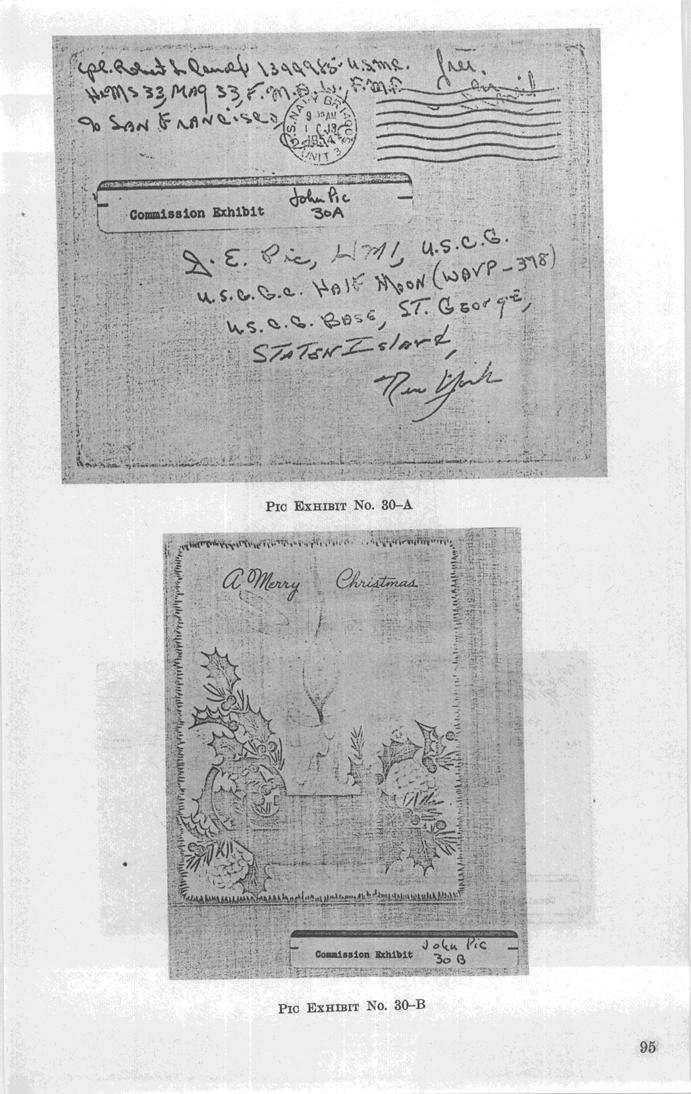 Cpl. Robert L. 1399985 - U.S.M.C.
H&MS 33, MAG 33, F.M.F.
% SAN FRANCISCO,
Free
air mail
U.S. NAVY BR
9 AM
1954
UNIT 3
Commission Exhibit
John Pic
30A
J. E. Pic, HM1, U.S.C.G.
U.S.C.G.C. HALF MOON (WAVP-378)
U.S.C.G. BASE, ST. GEORGE,
STATEN Island,
New York
PIC EXHIBIT No. 30–A
A Merry Christmas
Commission Exhibit
John Pic
30 B
PIC EXHIBIT No. 30–B
95